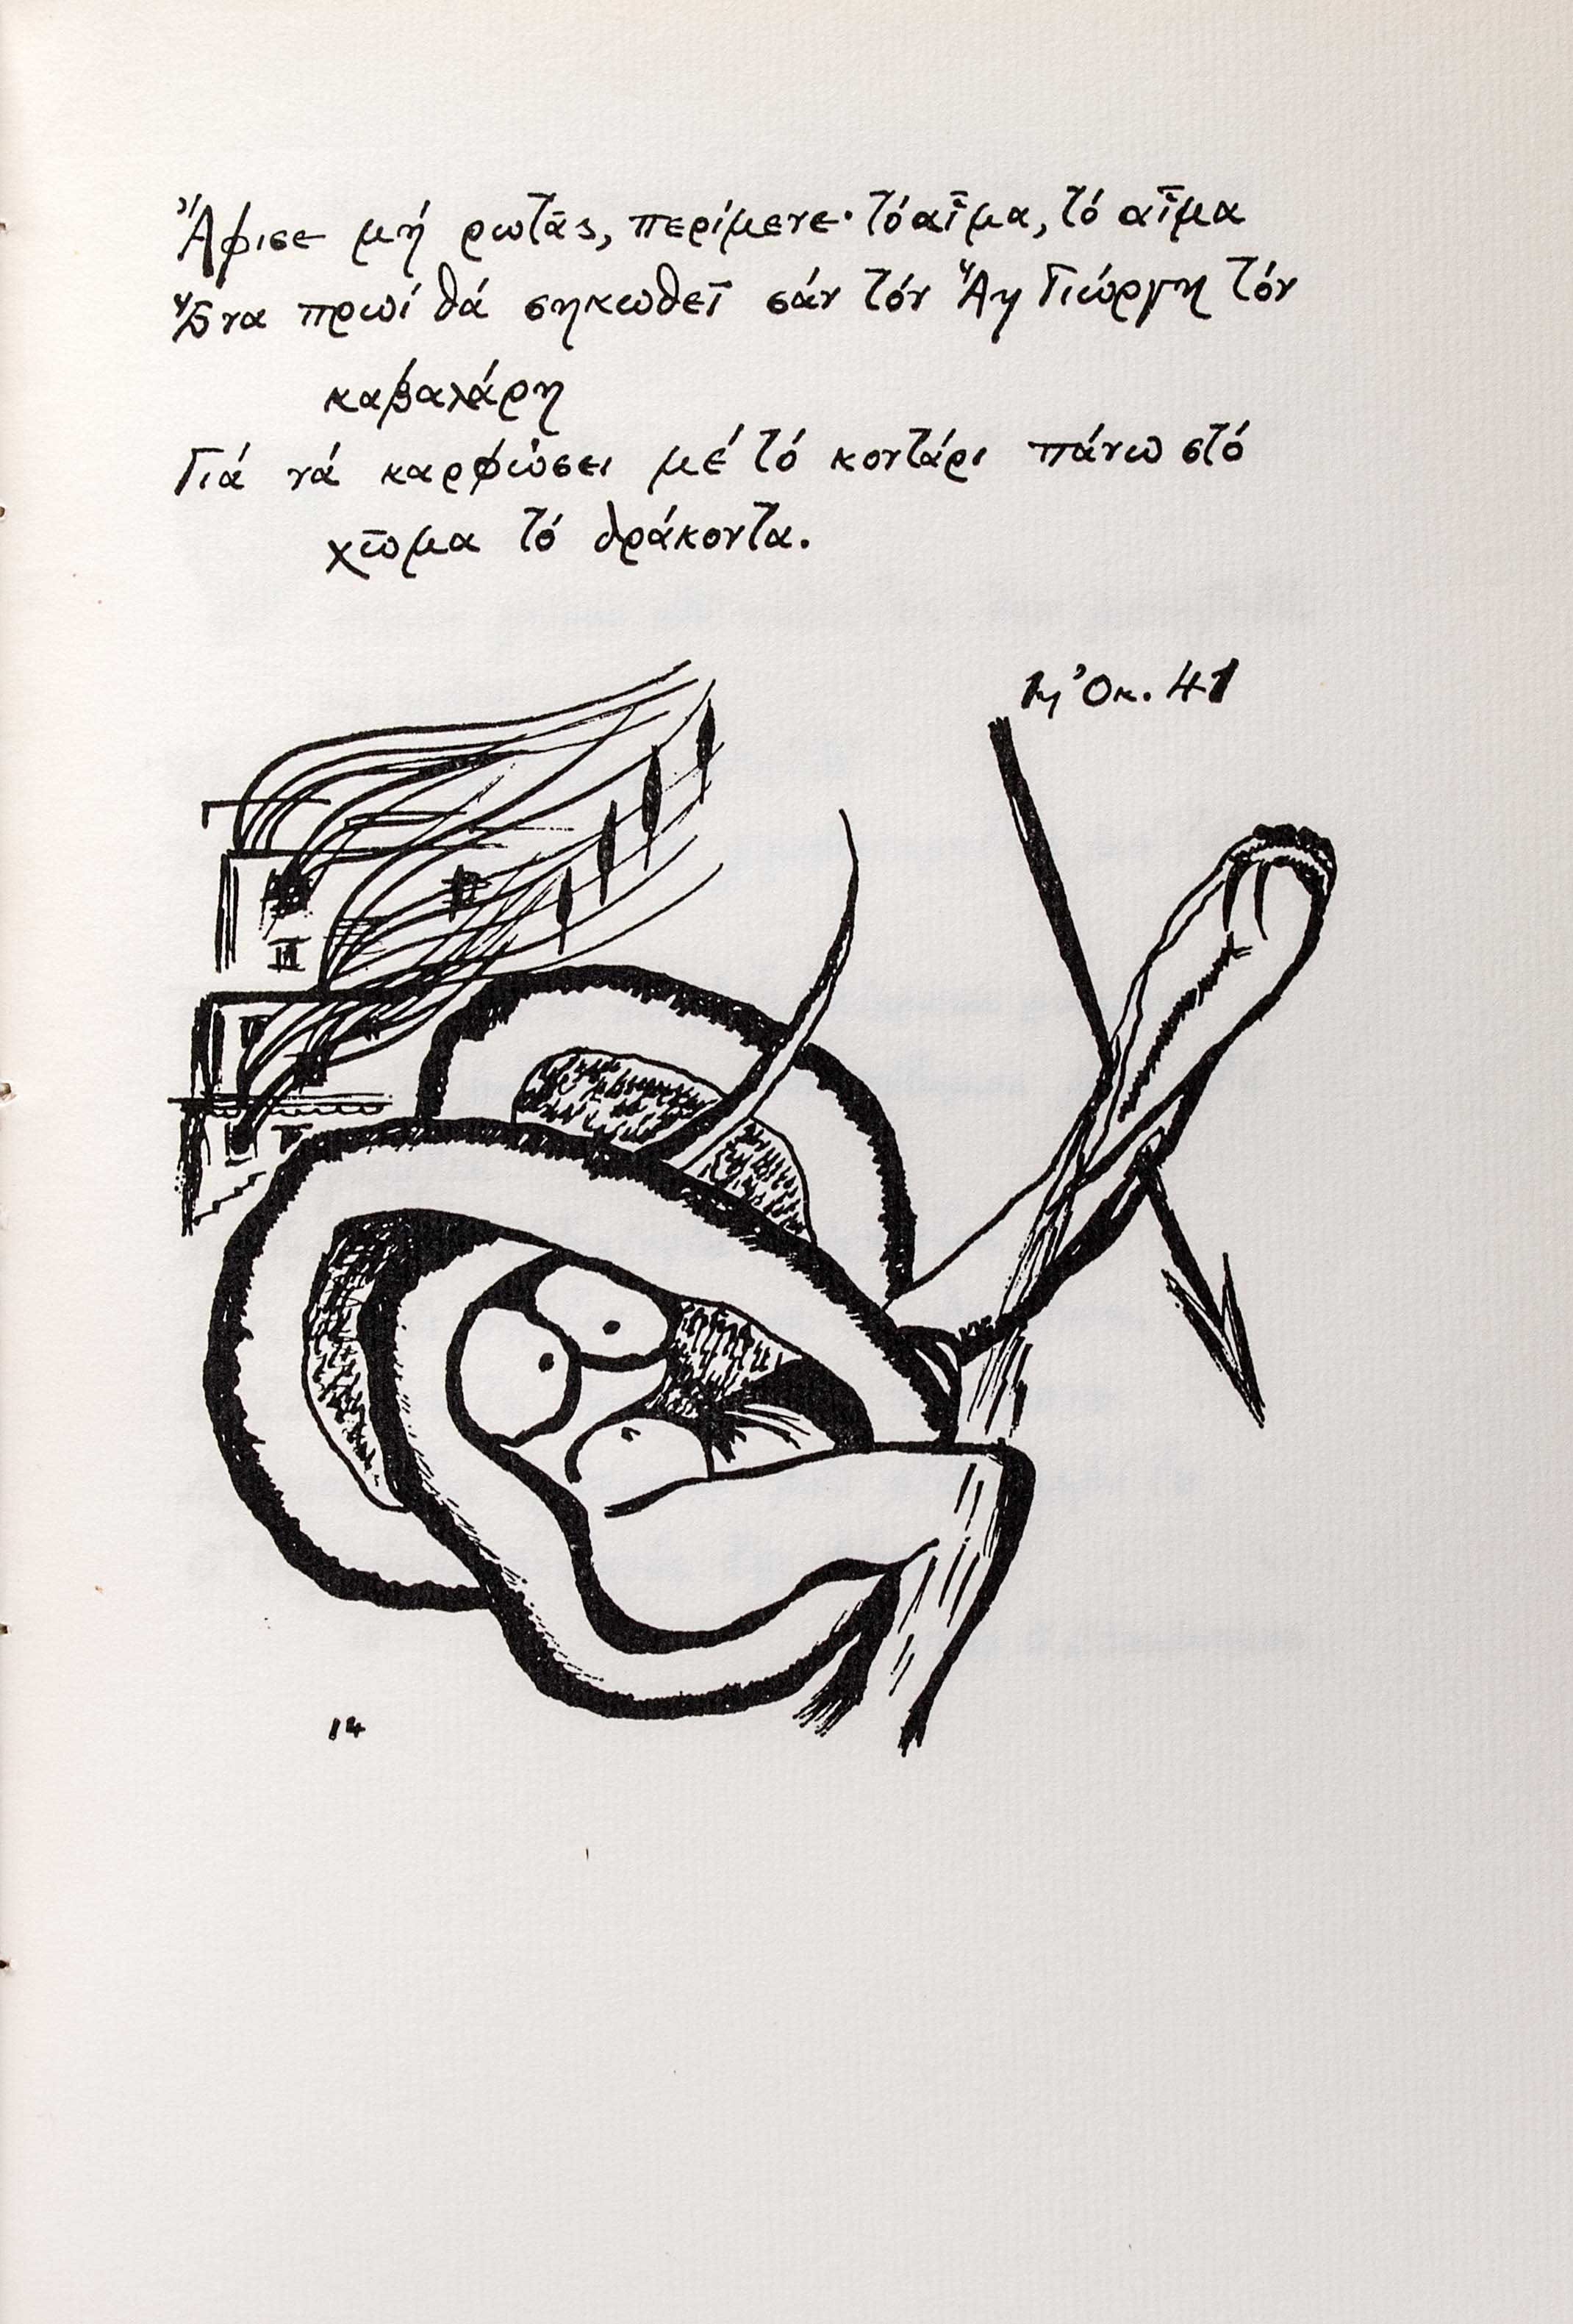 Ἄφισε μή ρωτᾶς, περίμενε· τό αἷμα, τό αἷμα
Ἕνα πρωί θά σηκωθεῖ σάν τόν Ἅη Γιώργη τόν
καβαλάρη
Γιά νά καρφώσει μέ τό κοντάρι πάνω στό
χῶμα τό δράκοντα.
1η Ὀκ. 41
14